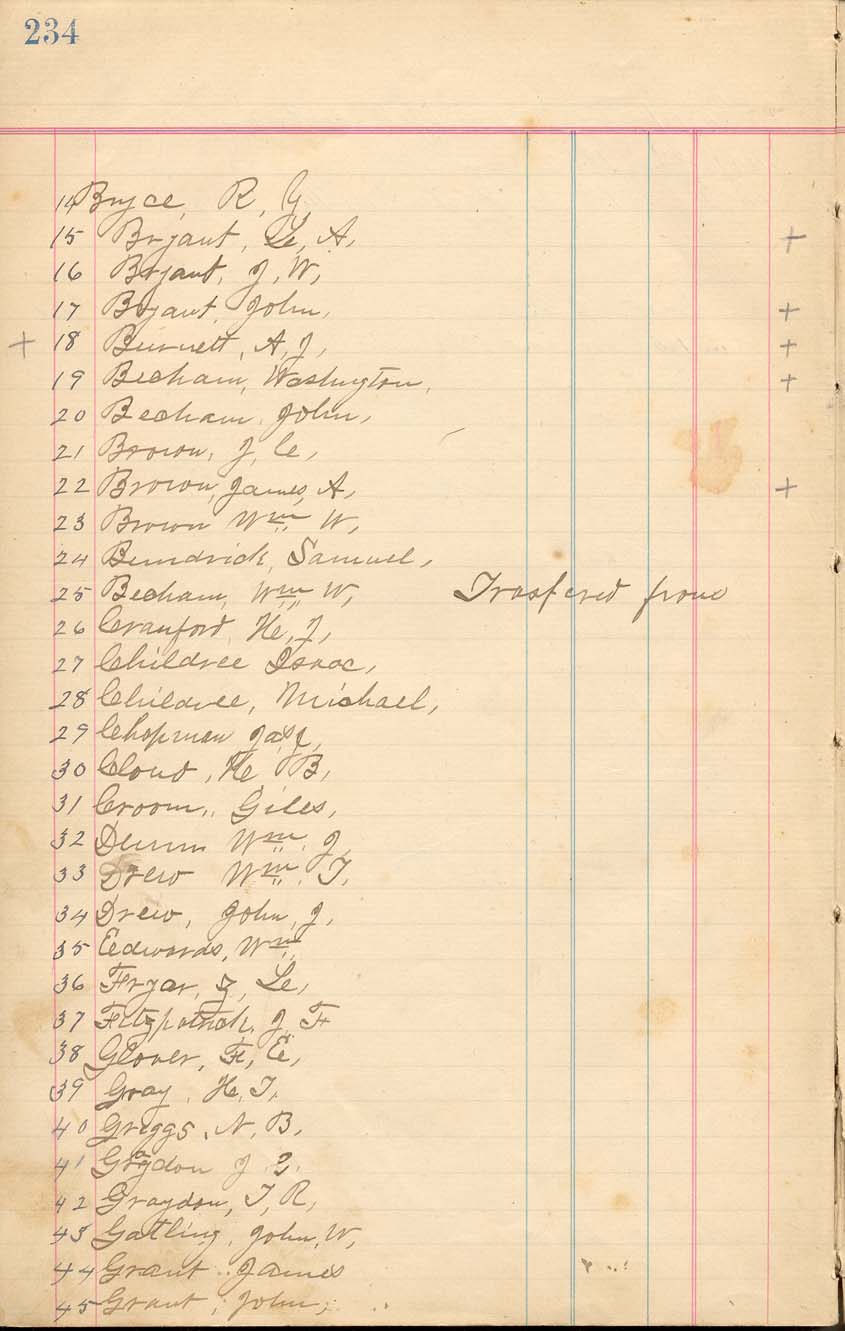 234
14 Bryce, R, Y,
15 Bryant, Le, A, +
16 Bryant, J, W,
17 Bryant, John, +
+ 18 Burnett, A, J, +
19 Becham, Washington, +
20 Becham, John,
21 Brown, J, C,
22 Brown, James, A, +
23 Brown Wm W,
24 Bundrick, Samuel,
25 Becham, Wm W, Trasfered from
26 Cranford, H, J,
27 Childree Isaac,
28 Childree, Michael,
29 Chopman
30 Cloud, H B,
31 Croom, Giles,
32 Dunn Wm J,
33 Drew Wm T,
34 Drew, John, J,
35 Eedwards, Wm
36 Fryar, Z, Le,
37 Fitzpatrick, J, F
38 Glover, F, E,
39 Gray, H, T,
40 Griggs, N, B,
41 Graydon J
42 Graydon, T, R,
43 Gatling, John, W,
44 Grant James
45 Grant, John,